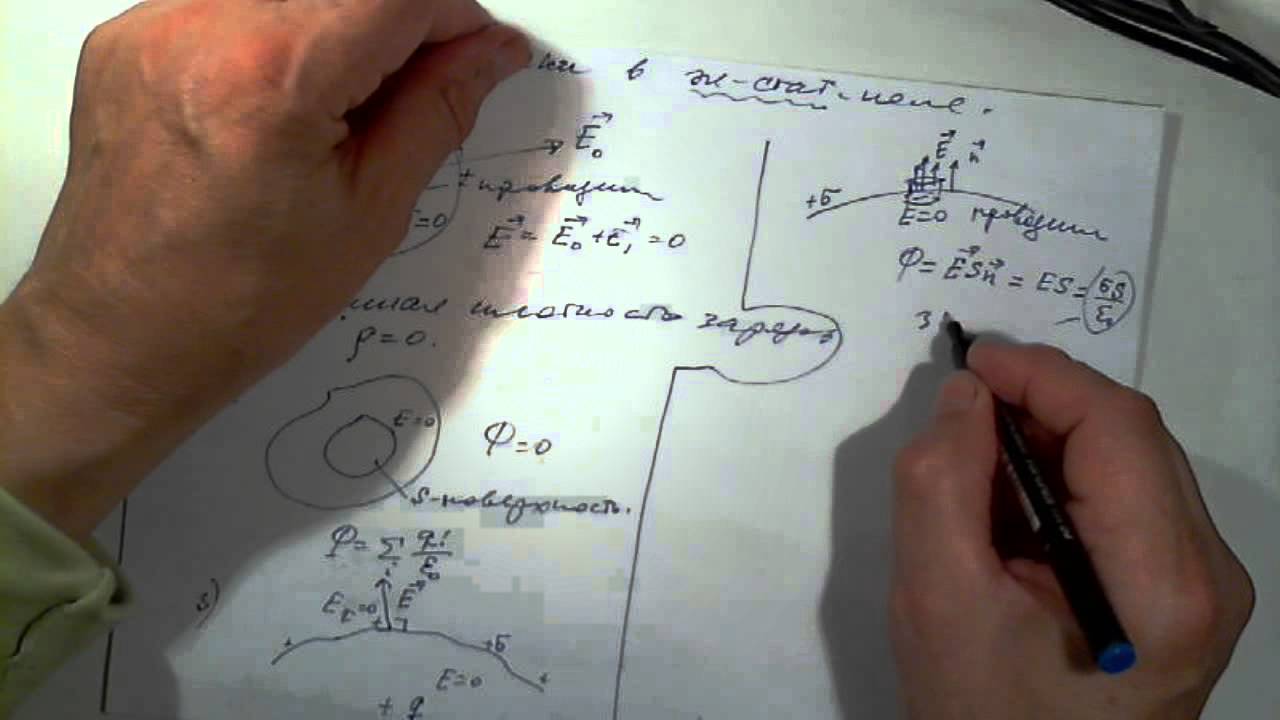 в эл-стат. поле.
E⃗₀
проводник
=0
E⃗ = E⃗₀ + E⃗₁ = 0
плотность заряда
ρ=0.
E=0
Φ=0
S-поверхность.
Φ=Σᵢ qᵢ/ε₀
3)
E_τ=0 E⃗
+ +б +
E=0
+ q
E⃗ n⃗
+б
E=0 проводник
Φ= E⃗Sn⃗ = ES= бS/ε₀
З